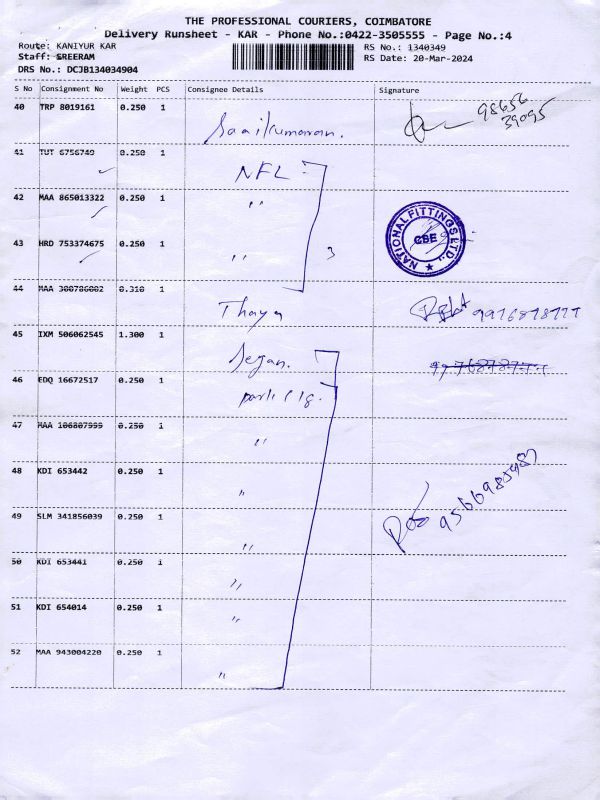 THE PROFESSIONAL COURIERS, COIMBATORE
Delivery Runsheet - KAR - Phone No.:0422-3505555 - Page No.:4
Route: KANIYUR KAR RS No.: 1340349
Staff: SREERAM RS Date: 20-Mar-2024
DRS No.: DCJB134034904
S No Consignment No Weight PCS Consignee Details Signature
40 TRP 8019161 0.250 1 98656
39095
41 TUT 6756749 0.250 1 NFL
42 MAA 865013322 0.250 1 "
43 HRD 753374675 0.250 1 " 3
NATIONAL FITTINGS LTD.
CBE
44 MAA 300786002 0.310 1 Thaya
45 IXM 506062545 1.300 1
46 EDQ 16672517 0.250 1 park clg.
47 MAA 106807999 0.250 1 "
48 KDI 653442 0.250 1 "
49 SLM 341856039 0.250 1 "
50 KDI 653441 0.250 1 "
51 KDI 654014 0.250 1 "
52 MAA 943004220 0.250 1 "